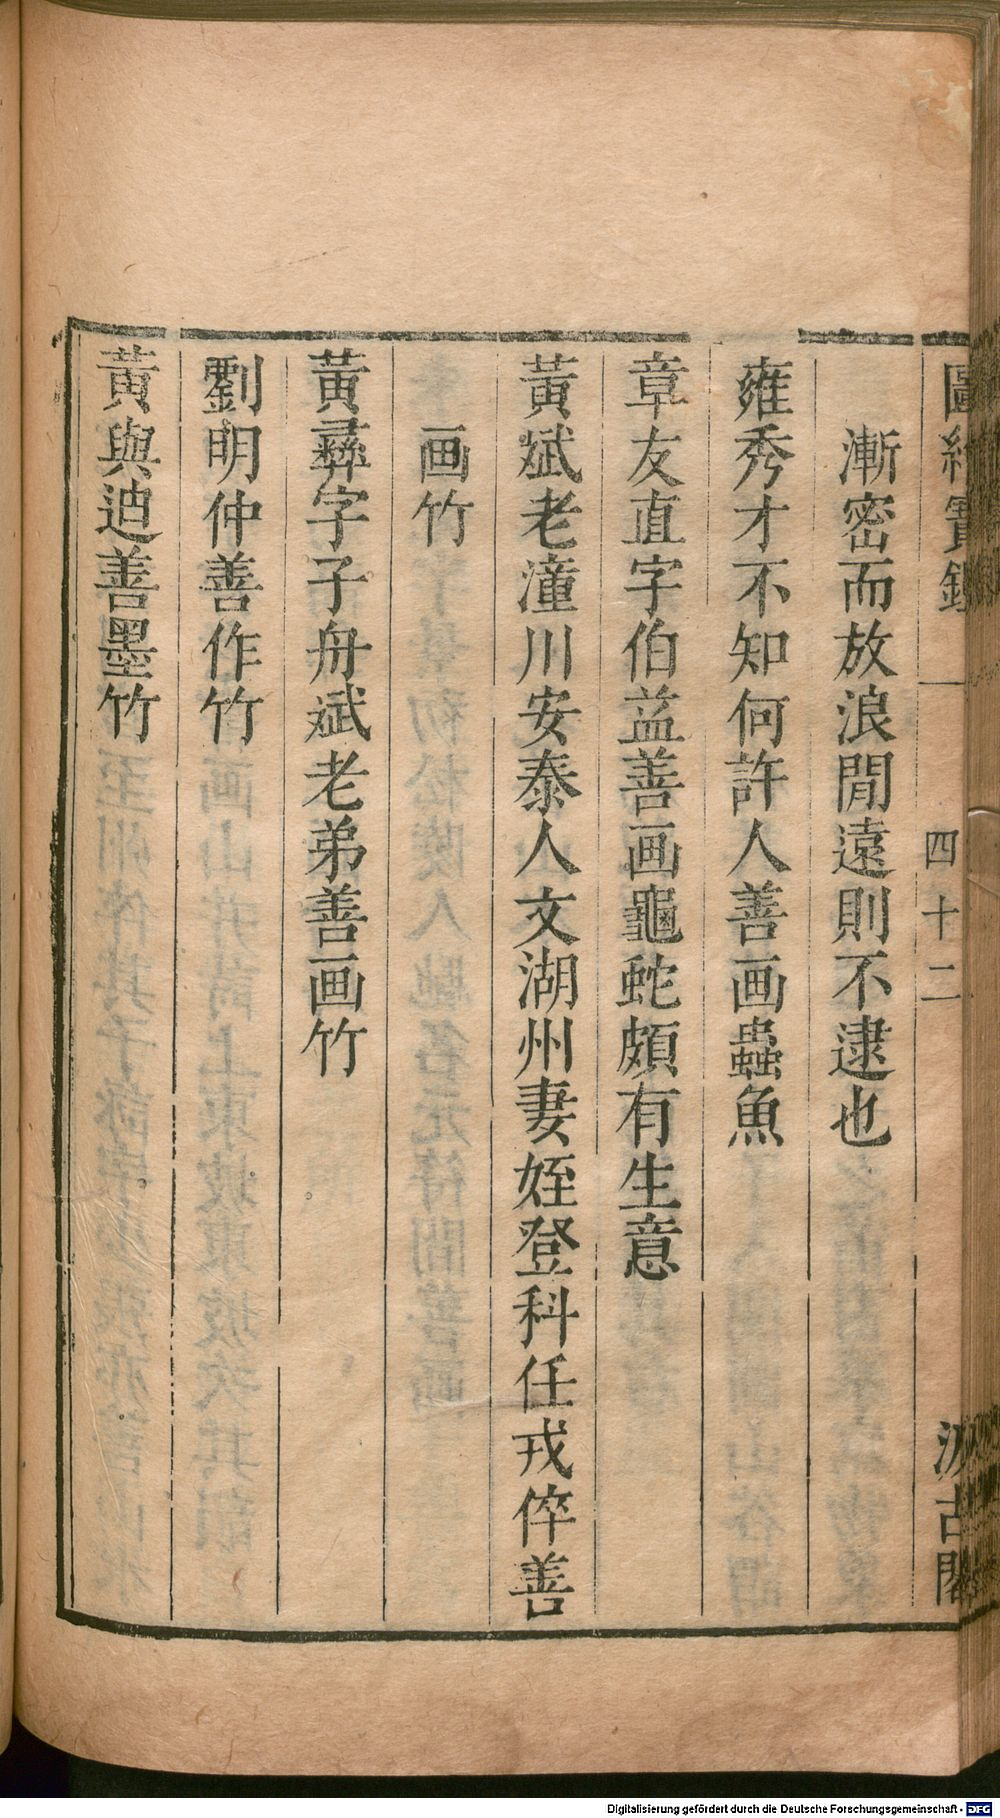 圖繪寶鑑
四十二
汲古閣
漸密而放浪閒遠則不逮也
雍秀才不知何許人善画蟲魚
章友直字伯益善画龜蛇頗有生意
黃斌老潼川安泰人文湖州妻姪登科任戎倅善
画竹
黃彝字子舟斌老弟善画竹
劉明仲善作竹
黃與迪善墨竹
Digitalisierung gefördert durch die Deutsche Forschungsgemeinschaft - DFG